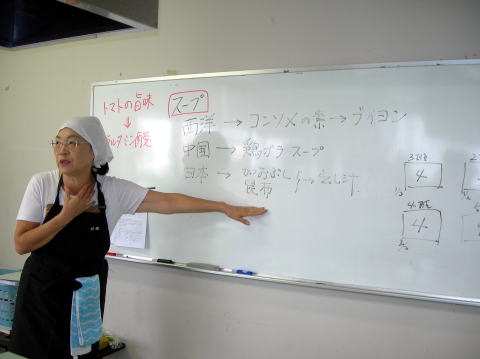 トマトの旨味
↓
グルタミン酸
スープ
西洋 → コンソメの素 → ブイヨン
中国 → 鶏ガラスープ
日本 → かつおぶし
昆布
→ だし汁
3班
4
1/2
4班
4